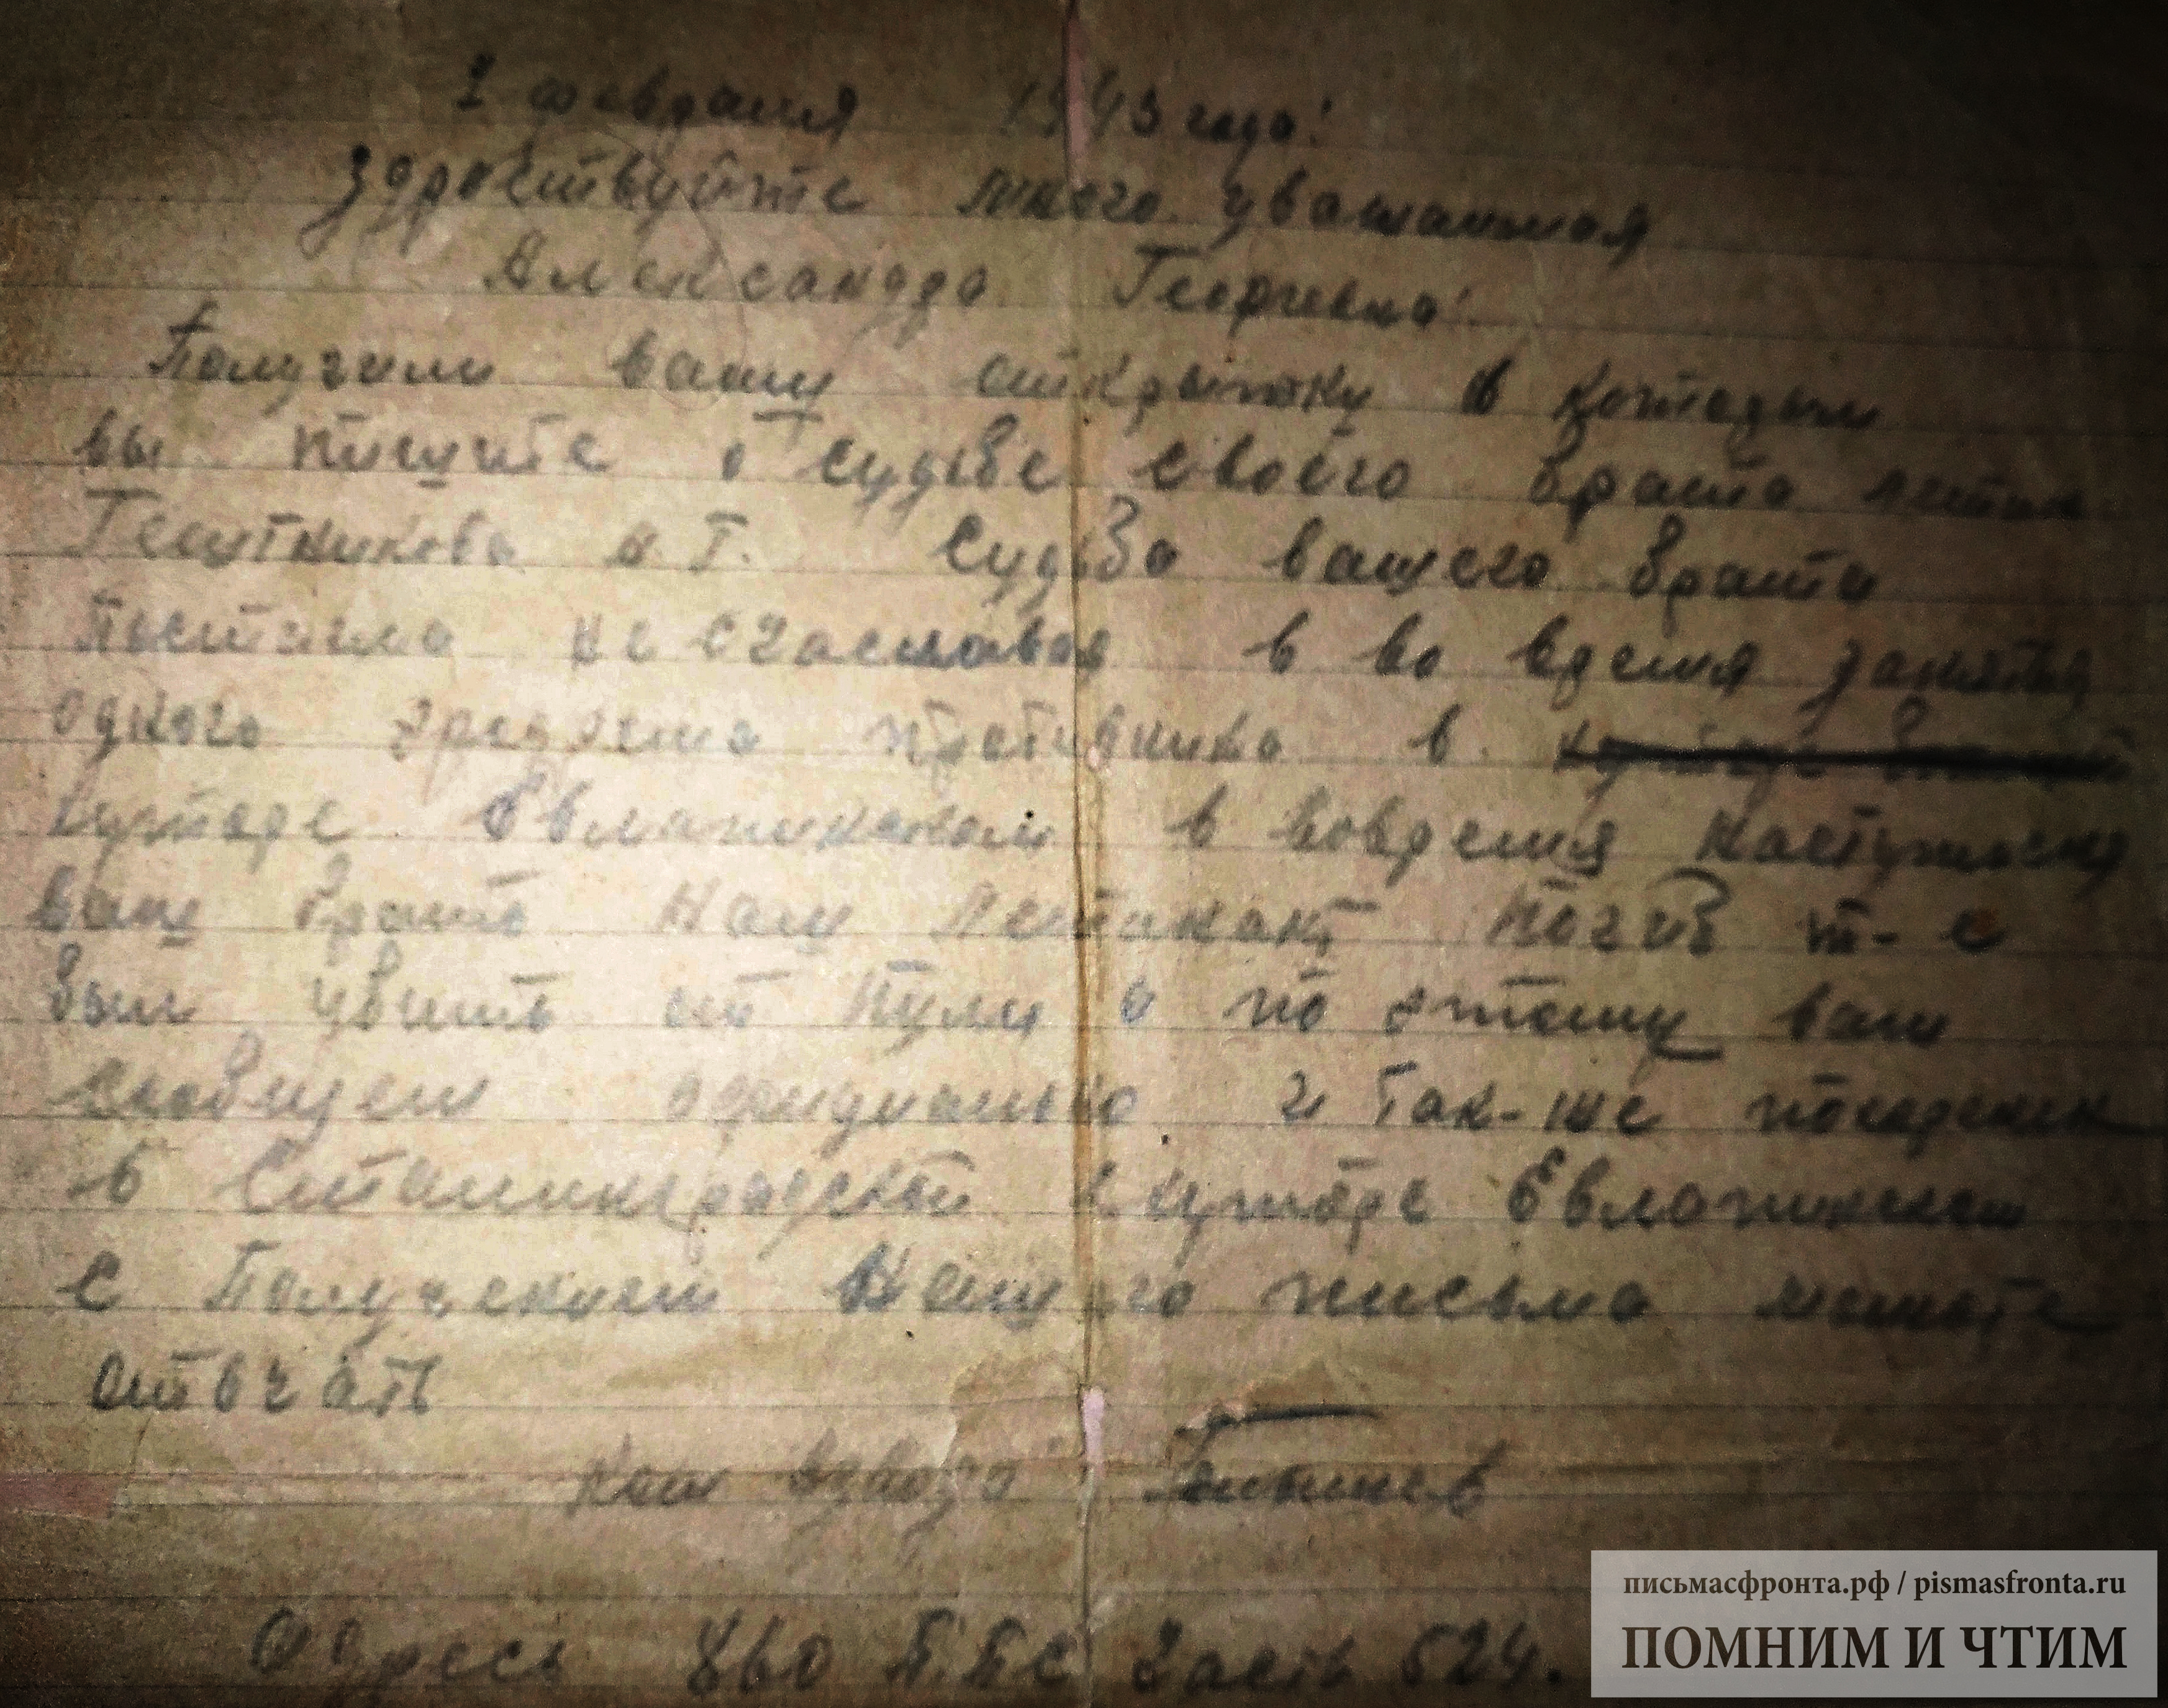 1 февраля 1943 года!
Здровствуйте много уважаимая
Александра Георгиевна!
Получили вашу открытку в которым
вы пишите о судьбе своего брата
н. Г. Судьба вашего брата
не счасливая в во время занятия
одного противника в
хуторе Евлампинском в вовремя наступления
ваш брать наш Летинант погиб т-е
был убить от пули и по этому вам
сообщем официально и так-же
в Сталинградской хуторе Евлампинском
с получением нашего письма можете
отвчать
Ком взвода
Адресь 860 П.П.С часть 524.
письмасфронта.рф / pismasfronta.ru
ПОМНИМ И ЧТИМ